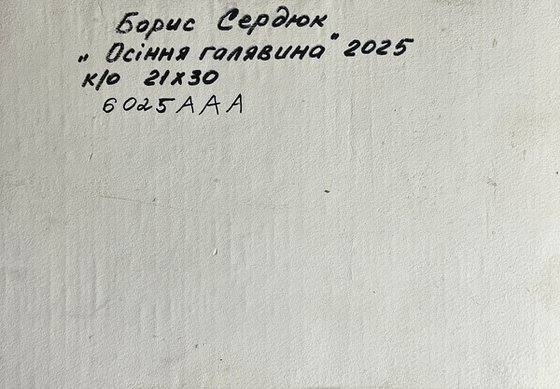 Борис Сердюк
„Осіння галявина" 2025
к/о 21х30
6025ААА